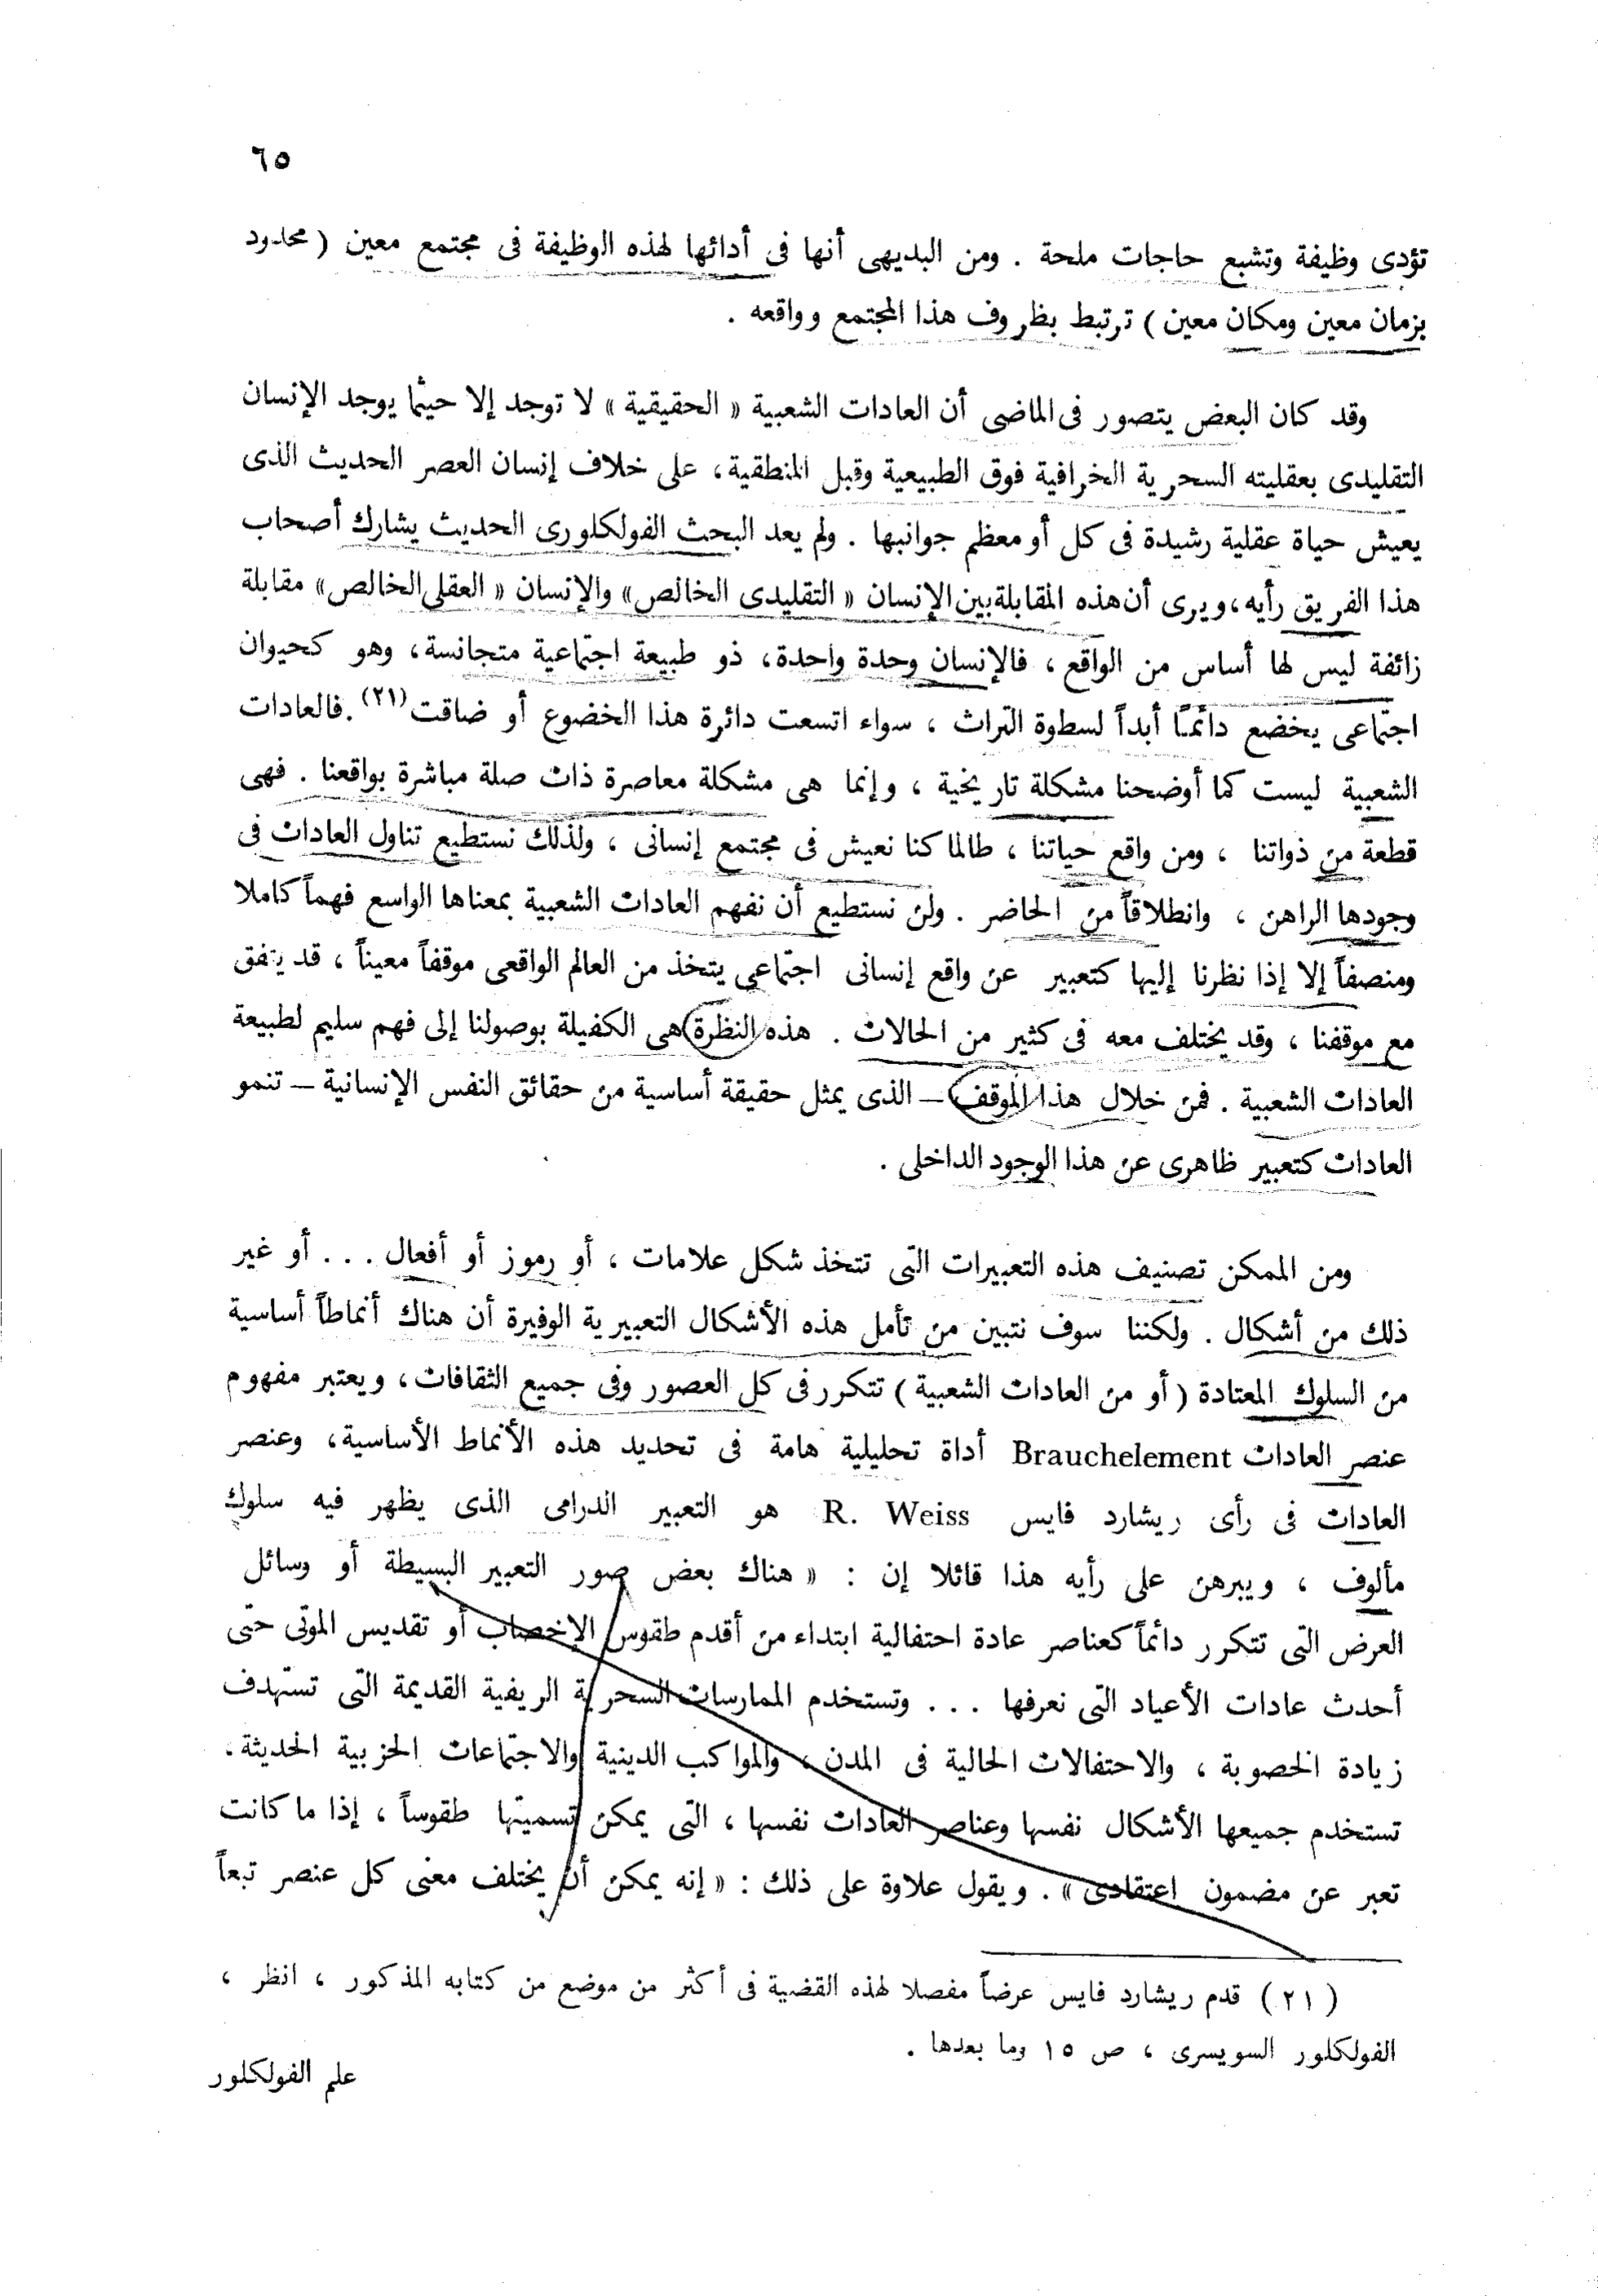 ٦٥
تؤدى وظيفة وتشبع حاجات ملحة . ومن البديهى أنها فى أدائها لهذه الوظيفة فى مجتمع معين ( محدود
بزمان معين ومكان معين ) ترتبط بظروف هذا المجتمع وواقعه .
وقد كان البعض يتصور فى الماضى أن العادات الشعبية « الحقيقية » لا توجد إلا حيثما يوجد الإنسان
التقليدى بعقليته السحرية الخرافية فوق الطبيعية وقبل المنطقية، على خلاف إنسان العصر الحديث الذى
يعيش حياة عقلية رشيدة فى كل أو معظم جوانبها . ولم يعد البحث الفولكلورى الحديث يشارك أصحاب
هذا الفريق رأيه، ويرى أن هذه المقابلة بين الإنسان « التقليدى الخالص» والإنسان « العقلى الخالص» مقابلة
زائفة ليس لها أساس من الواقع ، فالإنسان وحدة واحدة، ذو طبيعة اجتماعية متجانسة، وهو كحيوان
اجتماعى يخضع دائمـًا أبداً لسطوة التراث ، سواء اتسعت دائرة هذا الخضوع أو ضاقت(٢١) .فالعادات
الشعبية ليست كما أوضحنا مشكلة تاريخية ، وإنما هى مشكلة معاصرة ذات صلة مباشرة بواقعنا . فهى
قطعة من ذواتنا ، ومن واقع حياتنا ، طالما كنا نعيش فى مجتمع إنسانى ، ولذلك نستطيع تناول العادات فى
وجودها الراهن ، وانطلاقاً من الحاضر . ولن نستطيع أن نفهم العادات الشعبية بمعناها الواسع فهماً كاملا
ومنصفاً إلا إذا نظرنا إليها كتعبير عن واقع إنسانى اجتماعى يتخذ من العالم الواقعى موقفاً معيناً ، قد يتفق
مع موقفنا ، وقد يختلف معه فى كثير من الحالات . هذه النظرة هى الكفيلة بوصولنا إلى فهم سليم لطبيعة
العادات الشعبية . فمن خلال هذا الموقف – الذى يمثل حقيقة أساسية من حقائق النفس الإنسانية – تنمو
العادات كتعبير ظاهرى عن هذا الوجود الداخلى .
ومن الممكن تصنيف هذه التعبيرات التى تتخذ شكل علامات ، أو رموز أو أفعال . . . أو غير
ذلك من أشكال . ولكننا سوف نتبين من تأمل هذه الأشكال التعبيرية الوفيرة أن هناك أنماطاً أساسية
من السلوك المعتادة ( أو من العادات الشعبية ) تتكرر فى كل العصور وفى جميع الثقافات، ويعتبر مفهوم
عنصر العادات Brauchelement أداة تحليلية هامة فى تحديد هذه الأنماط الأساسية، وعنصر
العادات فى رأى ريشارد فايس R. Weiss هو التعبير الدرامى الذى يظهر فيه سلوك
مألوف ، ويبرهن على رأيه هذا قائلا إن : « هناك بعض صور التعبير البسيطة أو وسائل
العرض التى تتكرر دائماً كعناصر عادة احتفالية ابتداء من أقدم طقوس الإخصاب أو تقديس الموتى حتى
أحدث عادات الأعياد التى نعرفها . . . وتستخدم الممارسات السحرية الريفية القديمة التى تستهدف
زيادة الخصوبة ، والاحتفالات الحالية فى المدن ، والمواكب الدينية والاجتماعات الحزبية الحديثة .
تستخدم جميعها الأشكال نفسها وعناصر العادات نفسها ، التى يمكن تسميتها طقوساً ، إذا ما كانت
تعبر عن مضمون اعتقادى » . ويقول علاوة على ذلك : « إنه يمكن أن يختلف معنى كل عنصر تبعاً
( ٢١ ) قدم ريشارد فايس عرضاً مفصلا لهذه القضية فى أكثر من موضع من كتابه المذكور ، انظر ،
الفولكلور السويسرى ، ص ١٥ وما بعدها .
علم الفولكلور